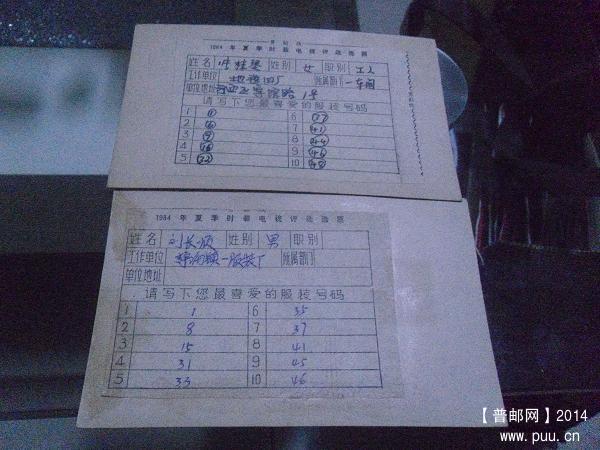 1984年夏季时装电视评选选票
姓名 性别 女 职别 工人
工作单位 所属部门 一车间
单位地址 1号
请写下您最喜爱的服装号码
1 ① 6 ㊲
2 7 ㊶
3 8 ㊹
4 9 ㊻
5 ㉒ 10 ㊽
1984年夏季时装电视评选选票
姓名 刘长顺 性别 男 职别
工作单位 一服装厂 所属部门
单位地址
请写下您最喜爱的服装号码
1 1 6 35
2 8 7 37
3 15 8 41
4 31 9 45
5 33 10 46
【普邮网】2014
www.puu.cn